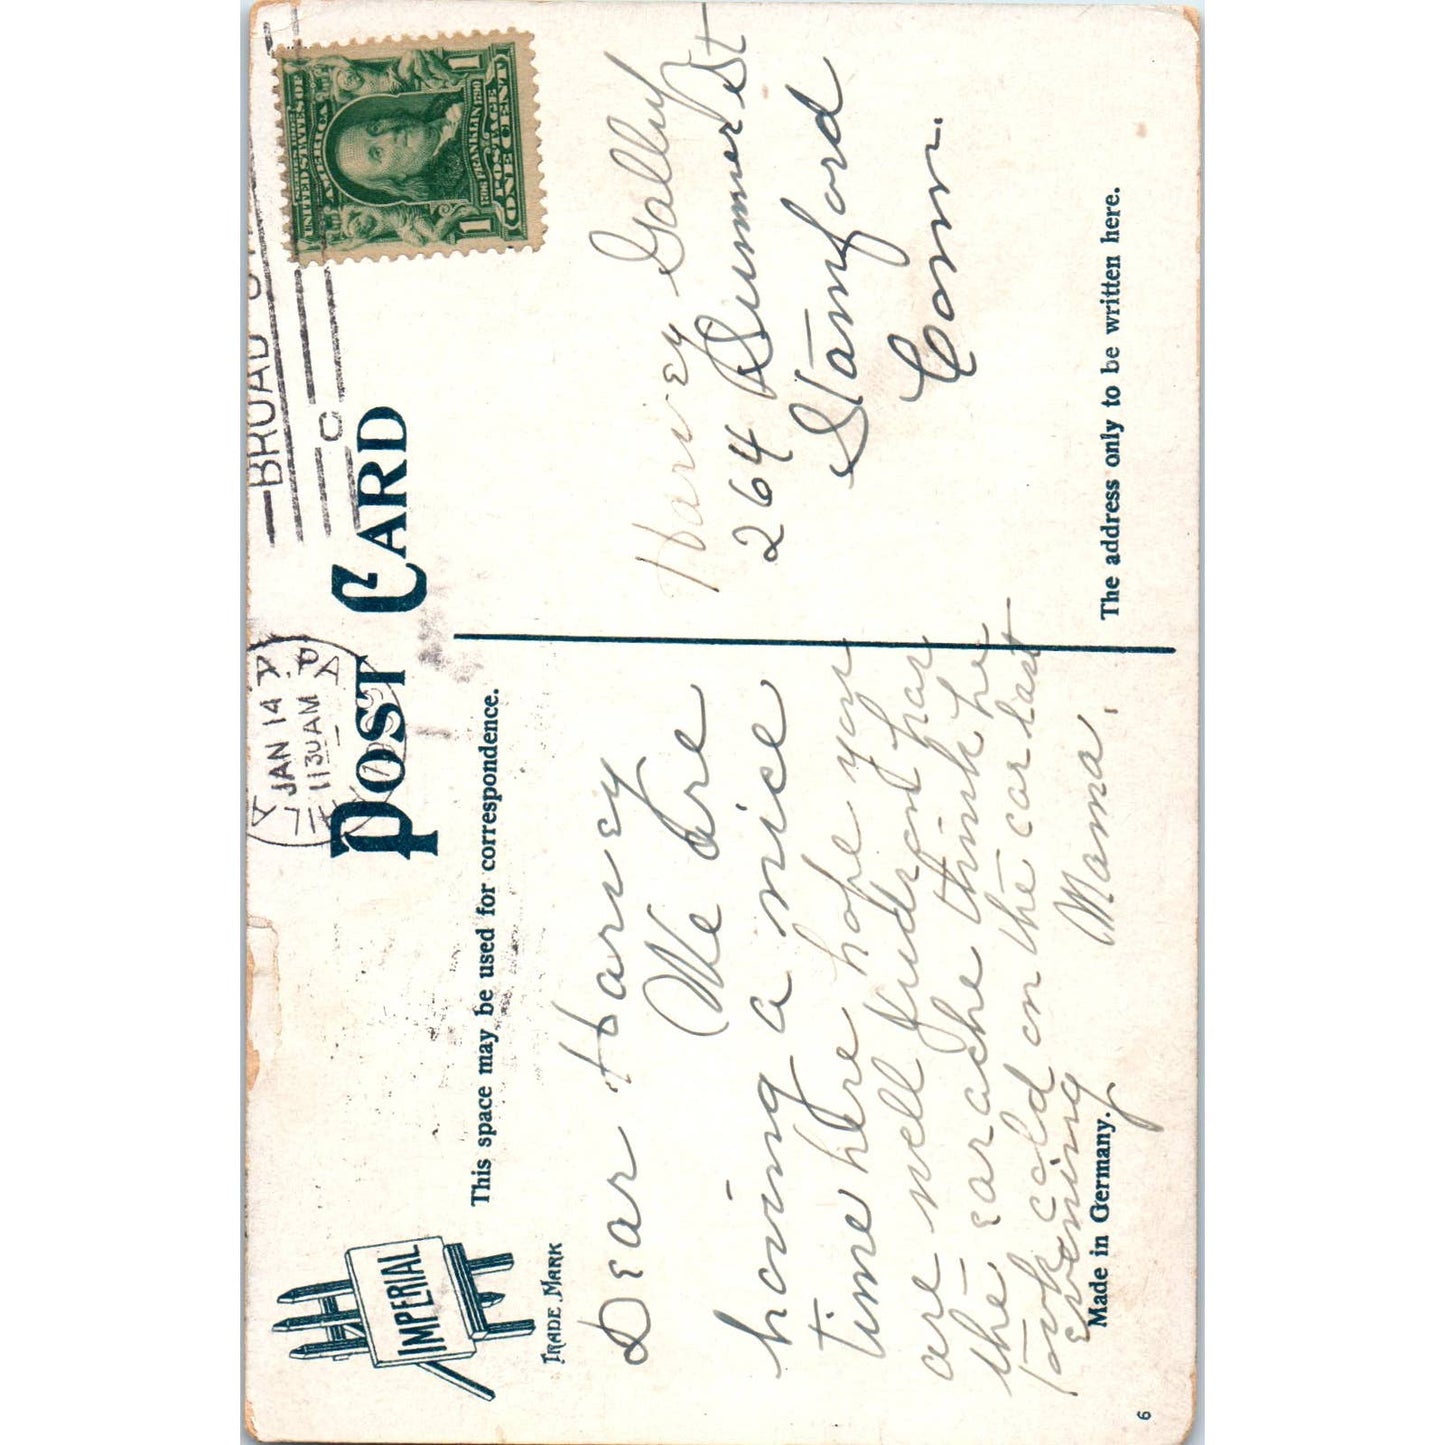 IMPERIAL
TRADE MARK
POST CARD
JAN 14
11 30 AM
PA
BROAD
UNITED STATES OF
AMERICA
1896 FRANKLIN 1790
POSTAGE
1 ONE CENT 1
This space may be used for correspondence.
Dear Harvey
We are
having a nice
time here hope you
are well
the ear ache think he
took cold on the car last
evening
Mama.
Harvey Gally
264 Summer St
Stamford
Conn.
The address only to be written here.
Made in Germany.
6